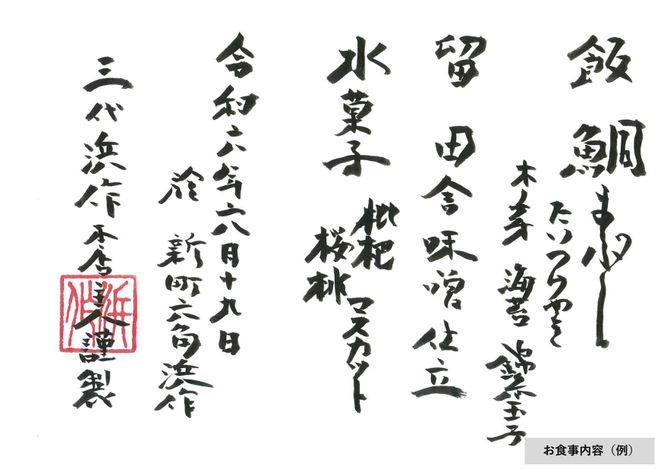 飯 鯛まぶし
たいつらゆき
木ノ芽 海苔 錦玉子
留 田舎味噌仕立
水菓子 枇杷 マスカット
桜桃
令和六年六月十九日
於 新町六角浜作
三代浜作本店主人謹製
浜作
お食事内容（例）